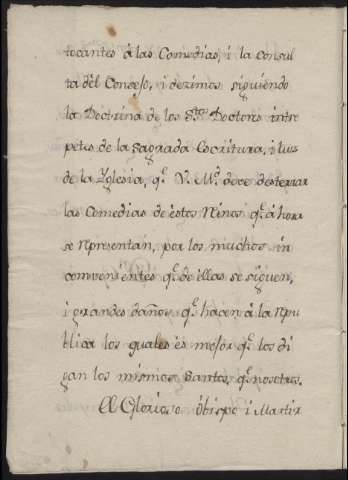 tocantes á las Comedias, i la Consul
ta dèl Consejo, i dezimos siguiendo
la Doctrina de los Sᵗᵒˢ Doctores inter
petes de la Sagrada Escritura, i luz
de la Yglesia, qᵉ V. Mᵈ deve desterrar
las Comedias de èstos Reinos qᵉ áhora
se representan, por los muchos in
convenientes qᵉ de èllas se siguen,
i grandes daños qᵉ hacen á la Repu
blica los quales ès mejor qᵉ los di
gan los mismos Santos, qᵉ nosotros.
El Glorioso Obispo i Martir